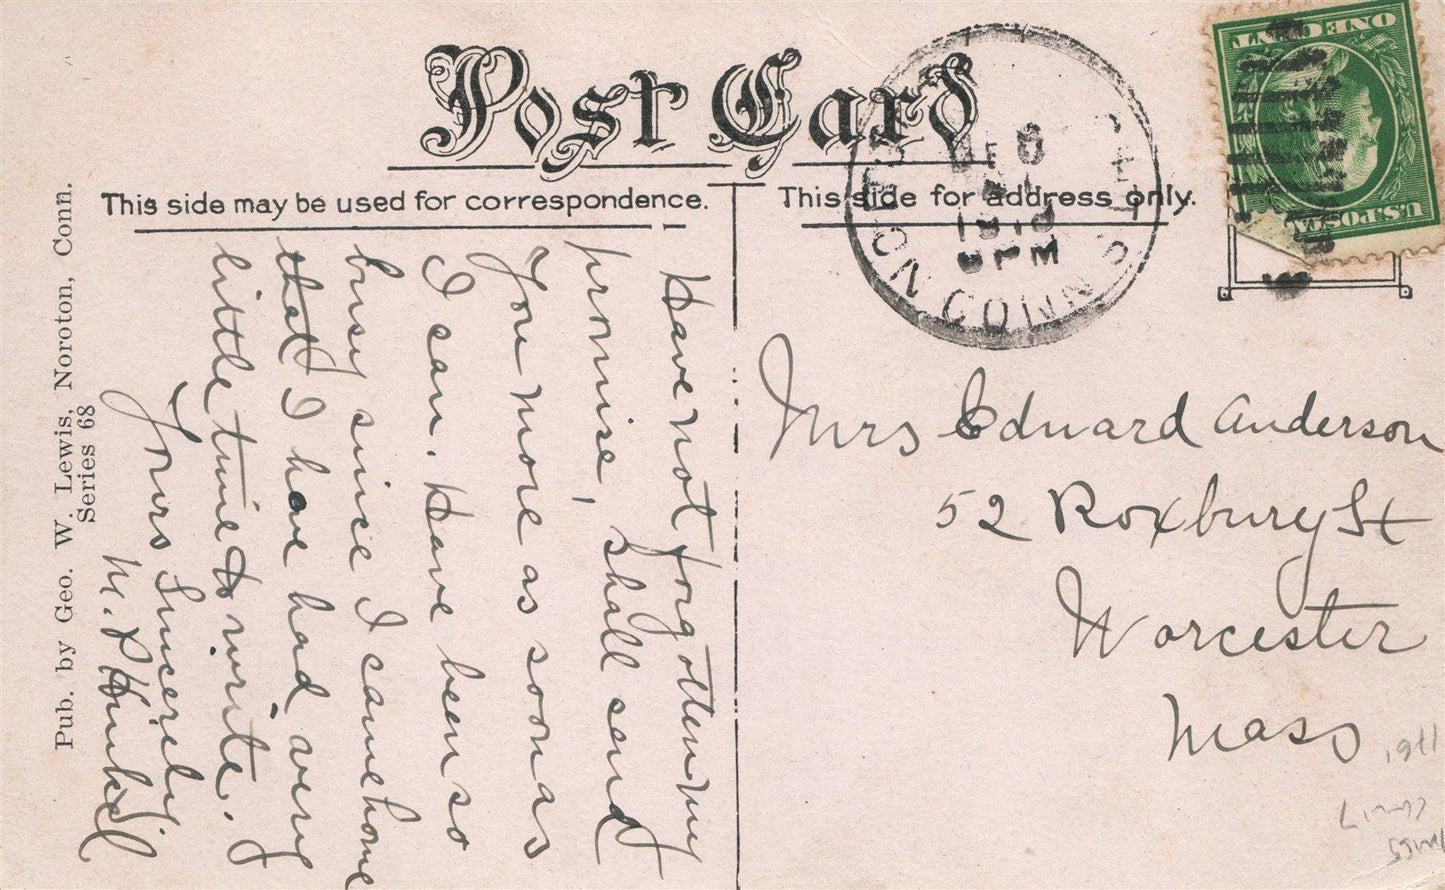 Post Card
This side may be used for correspondence.
This side for address only.
Have not forgotten my
promise, shall send
you more as soon as
I can. Have been so
busy since I came home
that I have had very
little time to write.
Yours Sincerely
M. P.
Mrs Edward Anderson
52 Roxbury St
Worcester
Mass
CONN
PM
ONE CENT
U.S. POSTAGE
Pub. by Geo. W. Lewis, Noroton, Conn.
Series 68